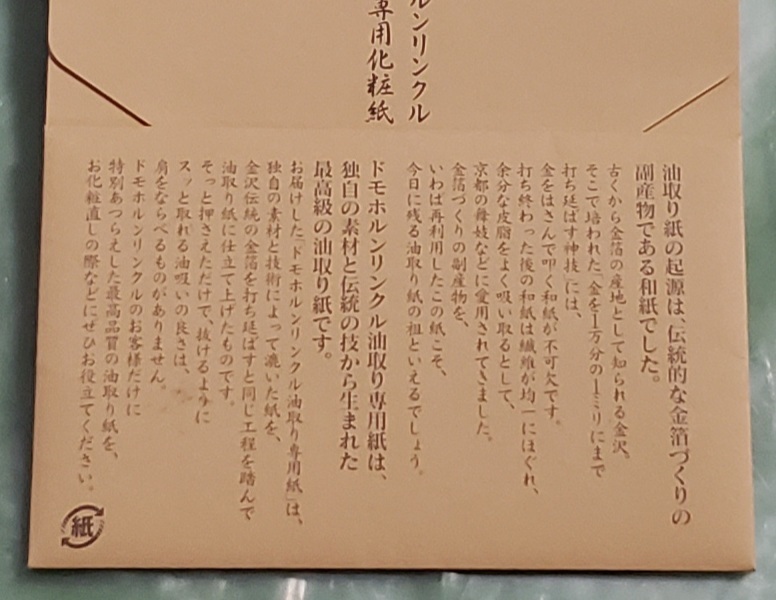 ルンリンクル
専用化粧紙
油取り紙の起源は、伝統的な金箔づくりの
副産物である和紙でした。
古くから金箔の産地として知られる金沢。
そこで培われた「金を1万分の1ミリにまで
打ち延ばす神技」には、
金をはさんで叩く和紙が不可欠です。
打ち終わった後の和紙は繊維が均一にほぐれ、
余分な皮脂をよく吸い取るとして、
京都の舞妓などに愛用されてきました。
金箔づくりの副産物を、
いわば再利用したこの紙こそ、
今日に残る油取り紙の祖といえるでしょう。
ドモホルンリンクル油取り専用紙は、
独自の素材と伝統の技から生まれた
最高級の油取り紙です。
お届けした「ドモホルンリンクル油取り専用紙」は、
独自の素材と技術によって漉いた紙を、
金沢伝統の金箔を打ち延ばすと同じ工程を踏んで
油取り紙に仕立て上げたものです。
そっと押さえただけで、抜けるように
スッと取れる油吸いの良さは、
肩をならべるものがありません。
ドモホルンリンクルのお客様だけに
特別あつらえした最高品質の油取り紙を、
お化粧直しの際などにぜひお役立てください。
紙